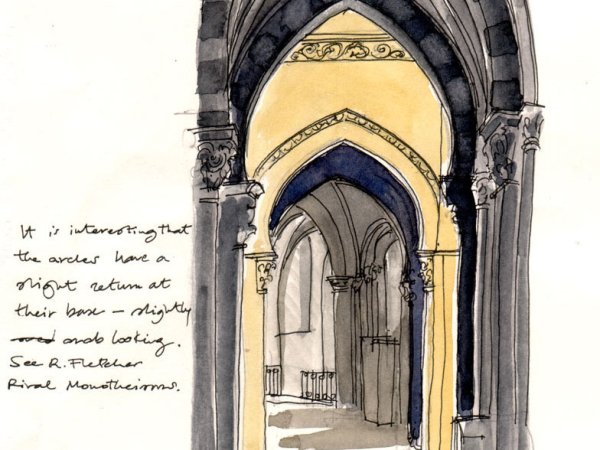 It is interesting that
the arches have a
slight return at
their base – slightly
arab looking.
See R. Fletcher
Rival Monotheisms.